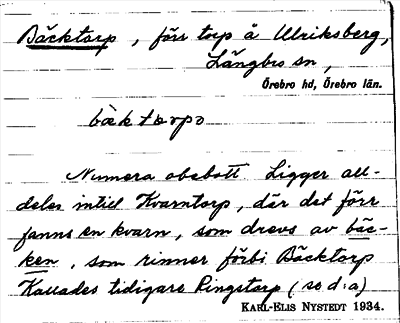 Bäcktorp, förr torp å Ulriksberg,
Längbro sn,
Örebro hd, Örebro län.
bäktorpə
Numera obebott. Ligger all-
deles intill Kvarntorp, där det förr
fanns en kvarn, som drevs av bäc-
ken, som rinner förbi Bäcktorp
Kallades tidigare Ringstorp (se d:a)
KARL-ELIS NYSTEDT 1934.